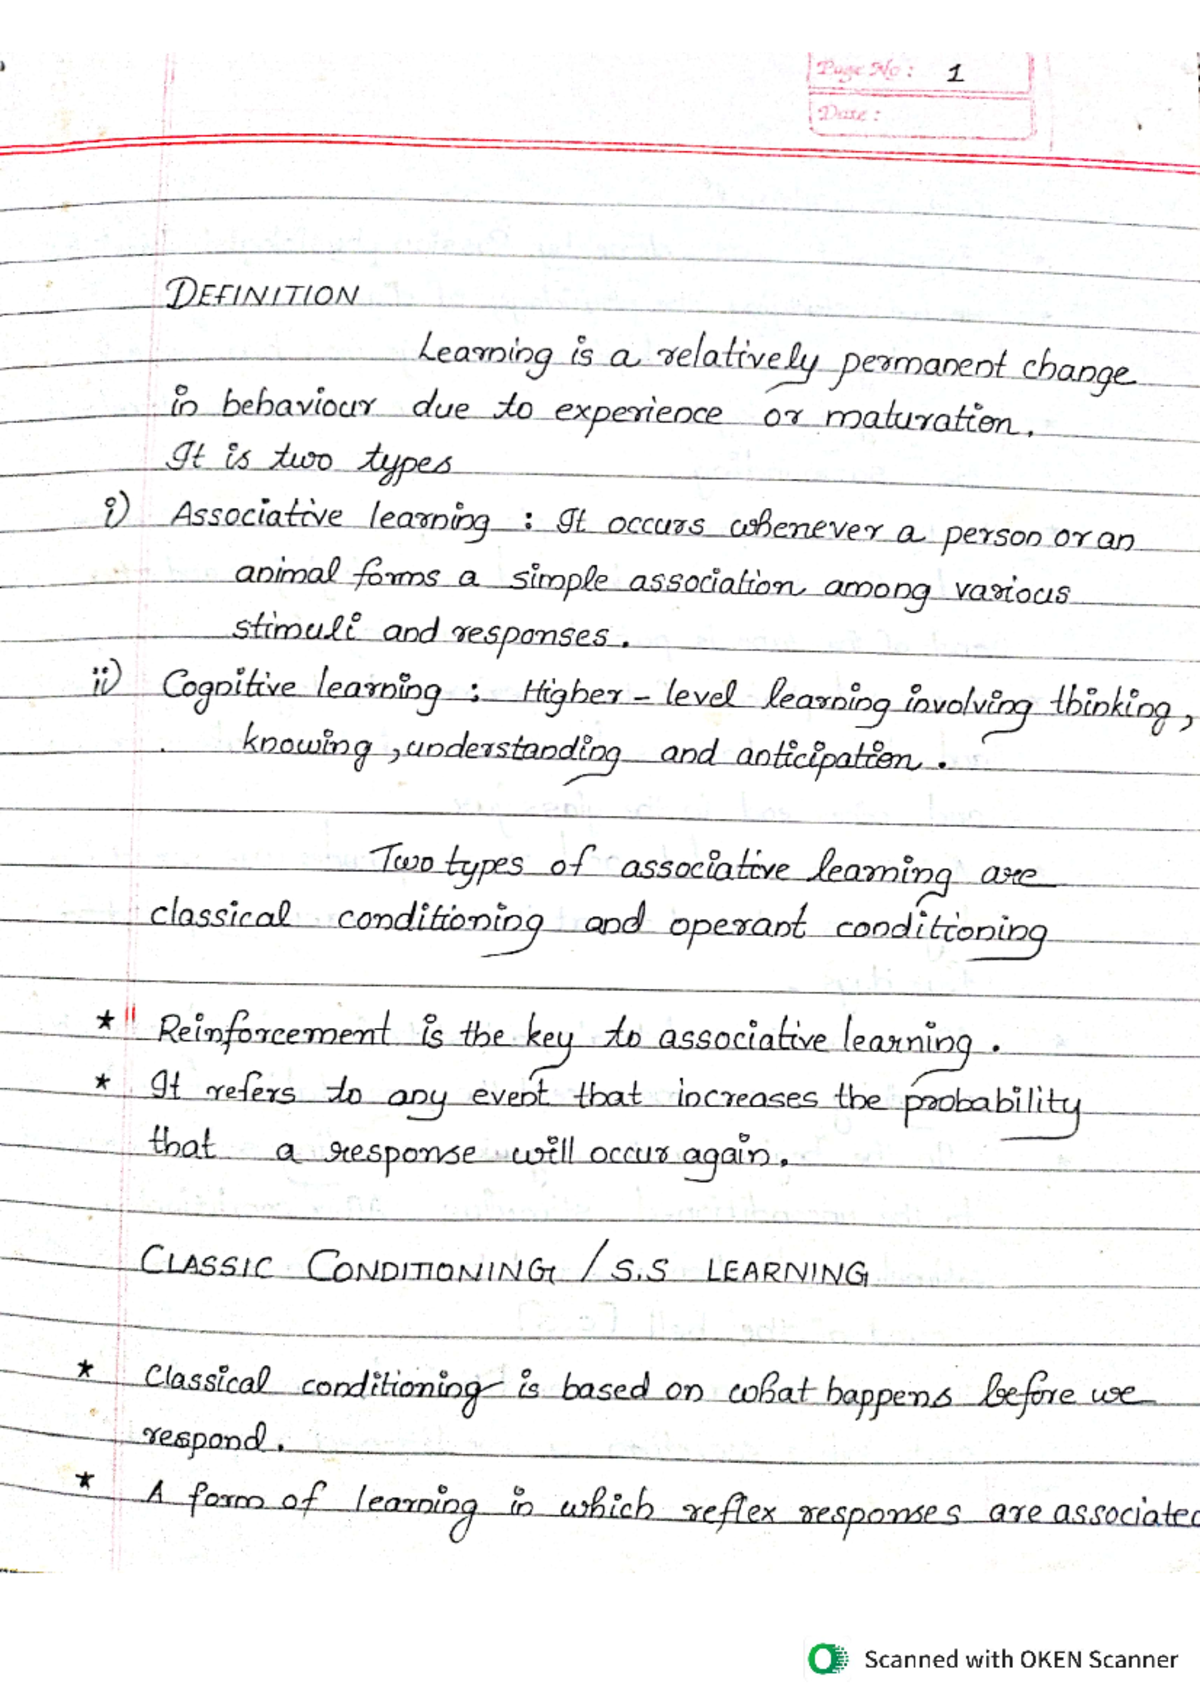 Page No: 1
Date:
DEFINITION
Learning is a relatively permanent change
in behaviour due to experience or maturation.
It is two types
i) Associative learning : It occurs whenever a person or an
animal forms a simple association among various
stimuli and responses.
ii) Cognitive learning : Higher-level learning involving thinking,
knowing, understanding and anticipation.
Two types of associative learning are
classical conditioning and operant conditioning
* Reinforcement is the key to associative learning.
* It refers to any event that increases the probability
that a response will occur again.
CLASSIC CONDITIONING / S.S LEARNING
* Classical conditioning is based on what happens before we
respond.
* A form of learning in which reflex responses are associated
Scanned with OKEN Scanner